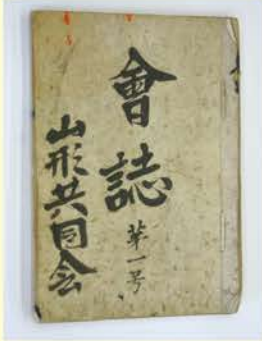 會誌 第一号
山形共同会